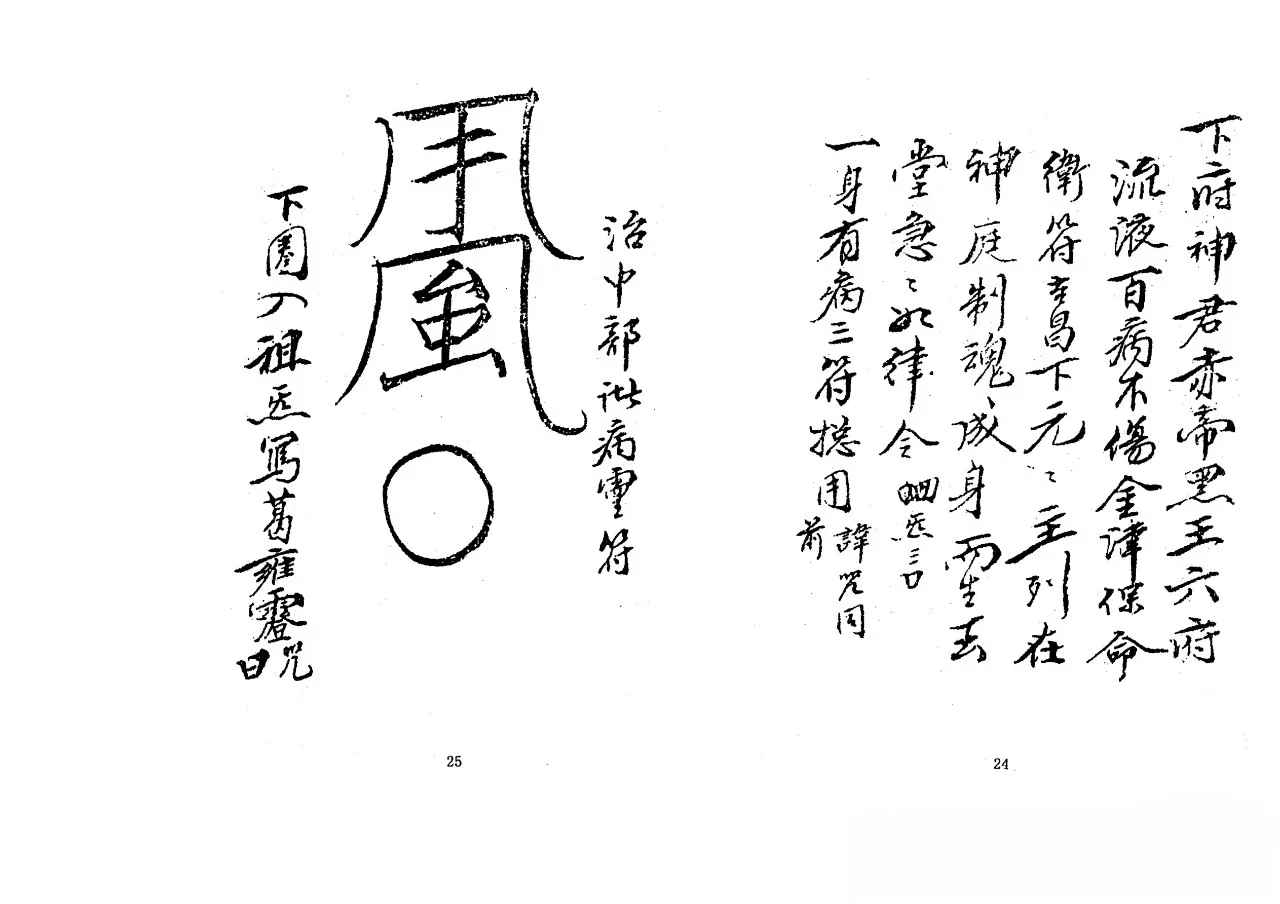 下府神君赤帝黑王六府
流液百病不傷金津保命
衛符書昌下元〻主列在
神庭制魂成身而生去
堂急〻如律令 炁三口
一身有病三符摠用諱咒同前
24
治中部諸病靈符
下圈入祖炁寫葛雍靈咒曰
25